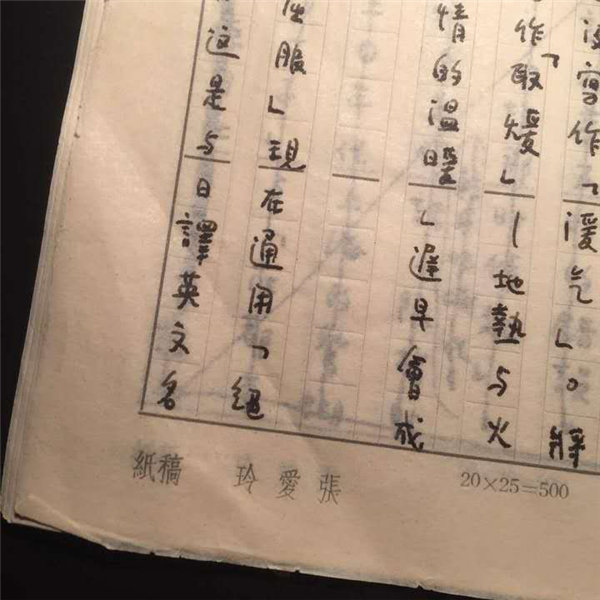 寫作「湲气」。將
作「取煖」—地熱与火
情的溫暖」遲早會成
服」現在通用「絕
這是与日譯英文名
張愛玲 稿紙
20×25=500